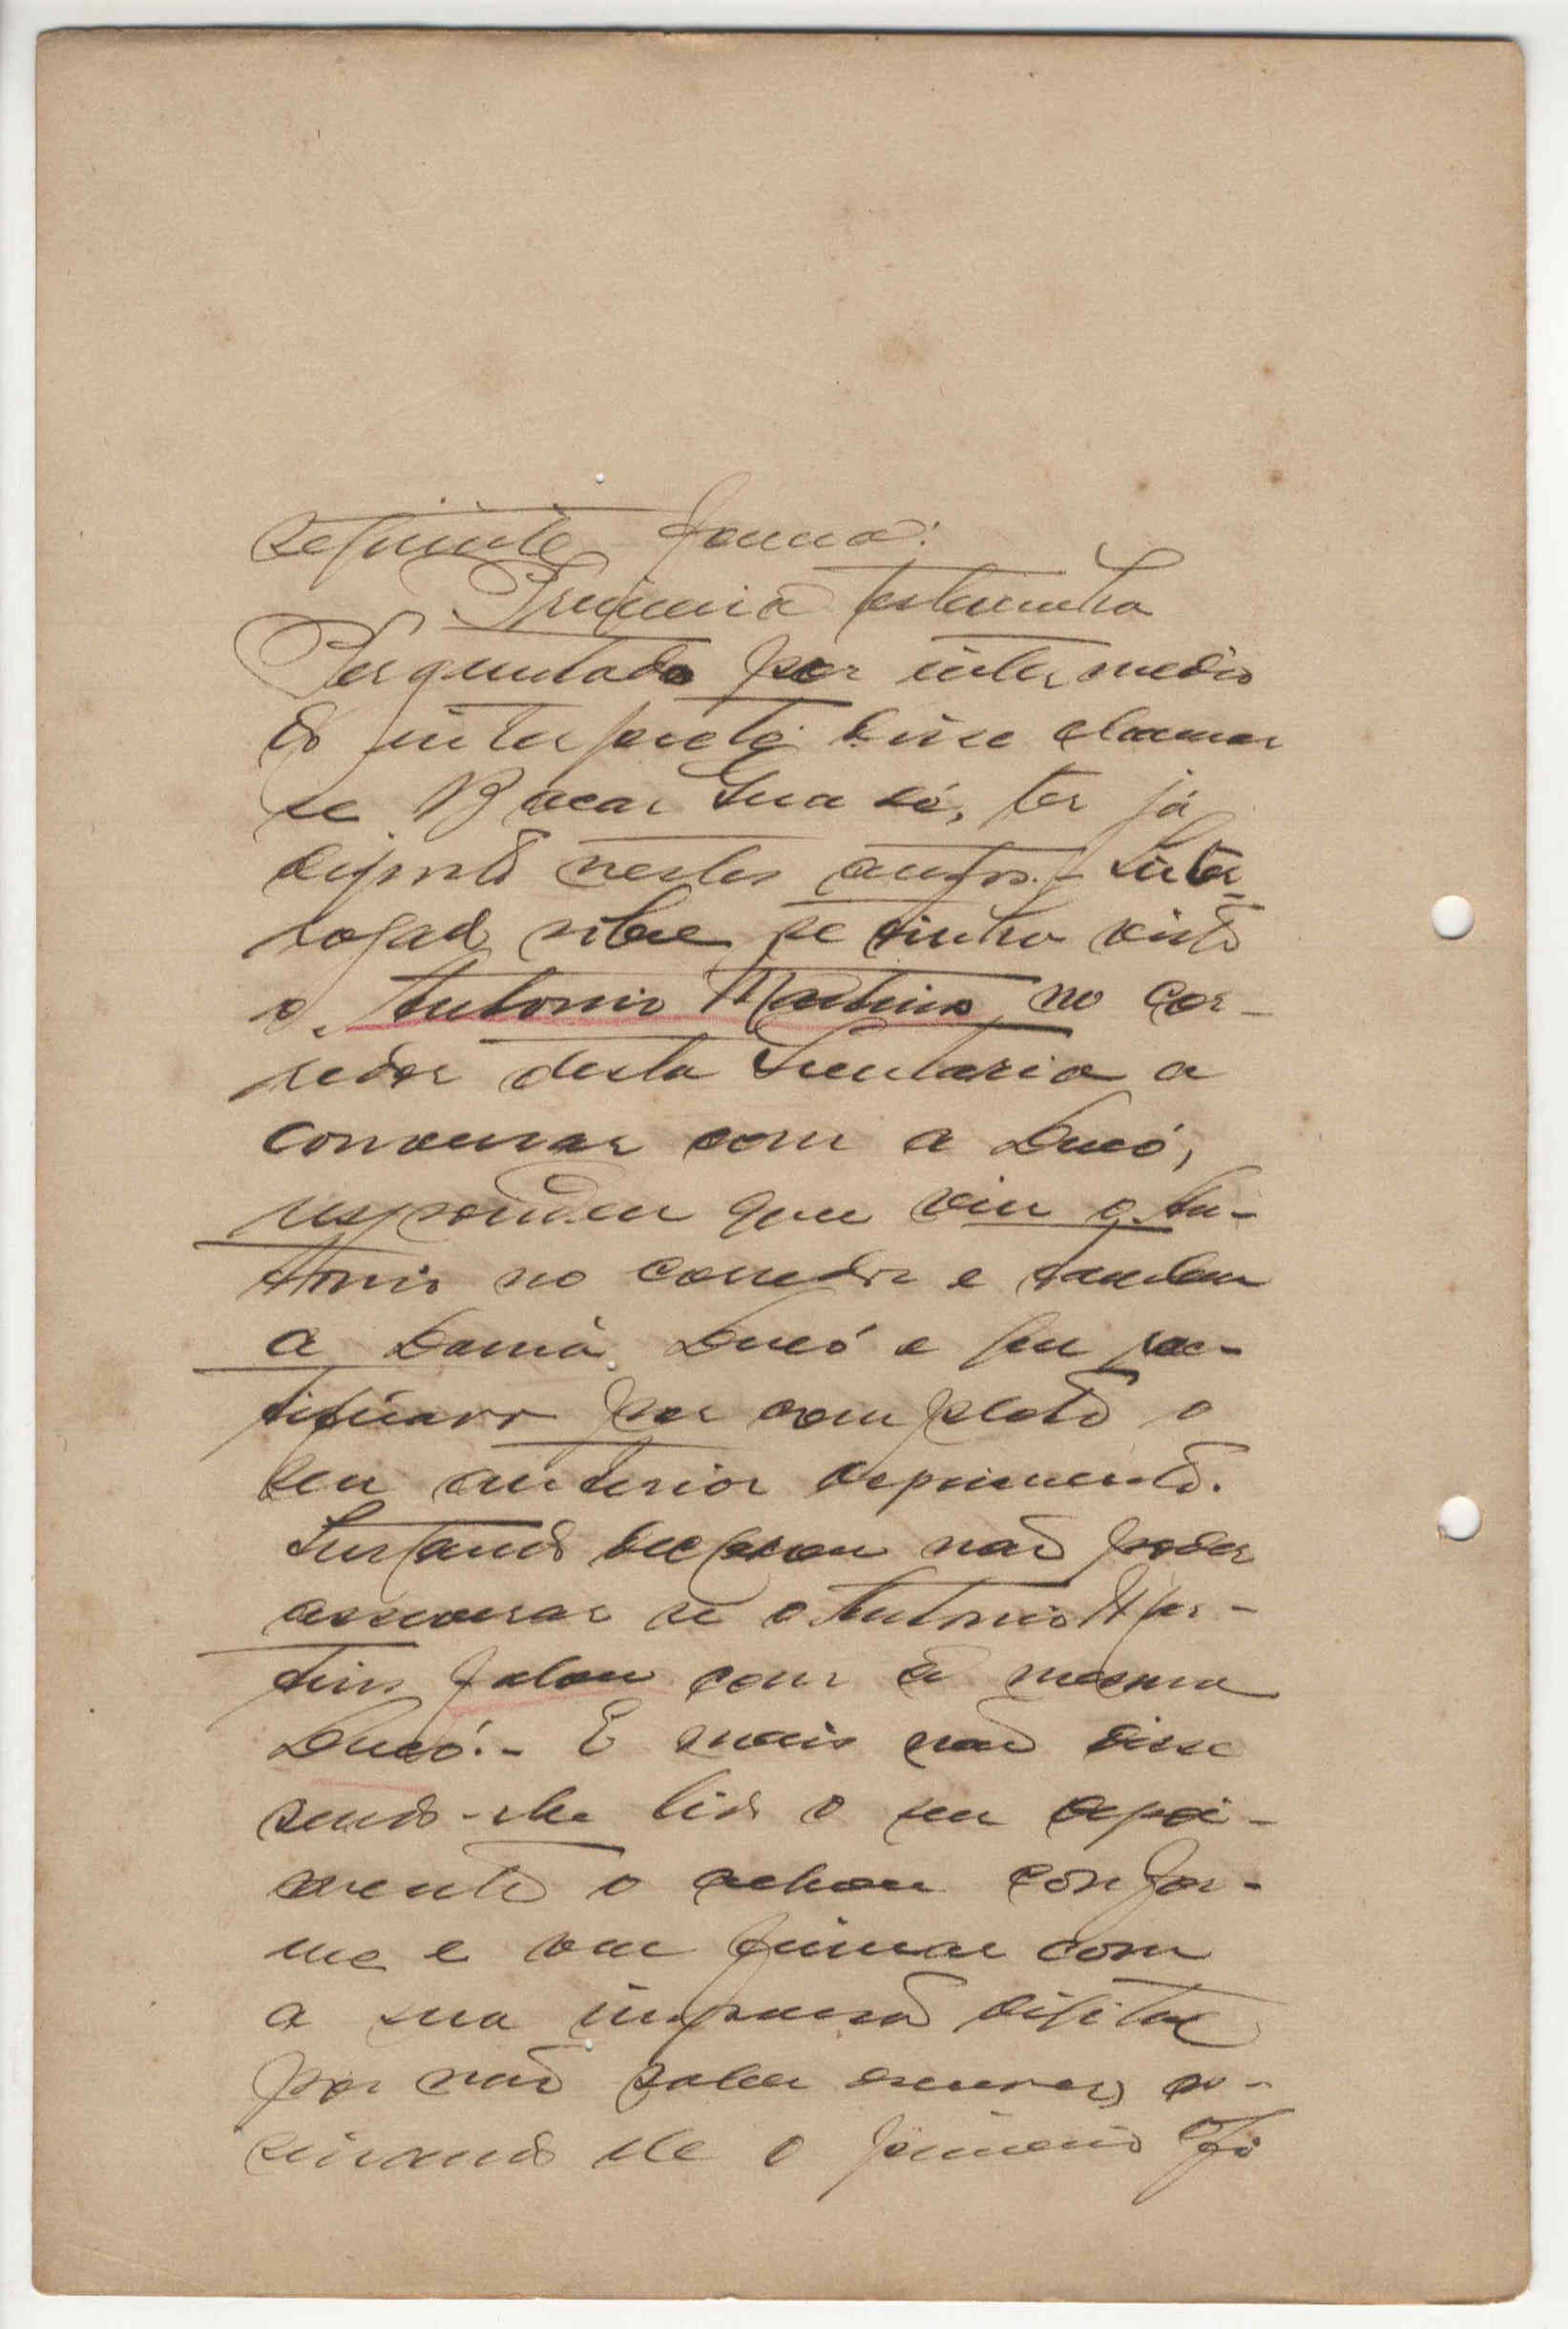 seguinte forma:
Primeira testemunha
Perguntado por intermedio
do interprete disse chamar
se Bacar
ter já
deposto nestes autos. - Inter-
rogado sobre se tinha visto
o Antonio Martins no cor-
redor desta Secretaria a
conversar com a Ducó,
respondeu que viu o An-
tonio no corredor e tambem
a Damá Ducó e
por completo o
seu anterior depoimento.
Instando declarou não poder
asseverar se o Antonio Mar-
tins falou com a mesma
Ducó. - E mais não disse
sendo-lhe lido o seu depoi-
mento o achou confor-
me e vae firmar com
a sua impressão digital
por não saber escrever, as-
sinando ele o primeiro